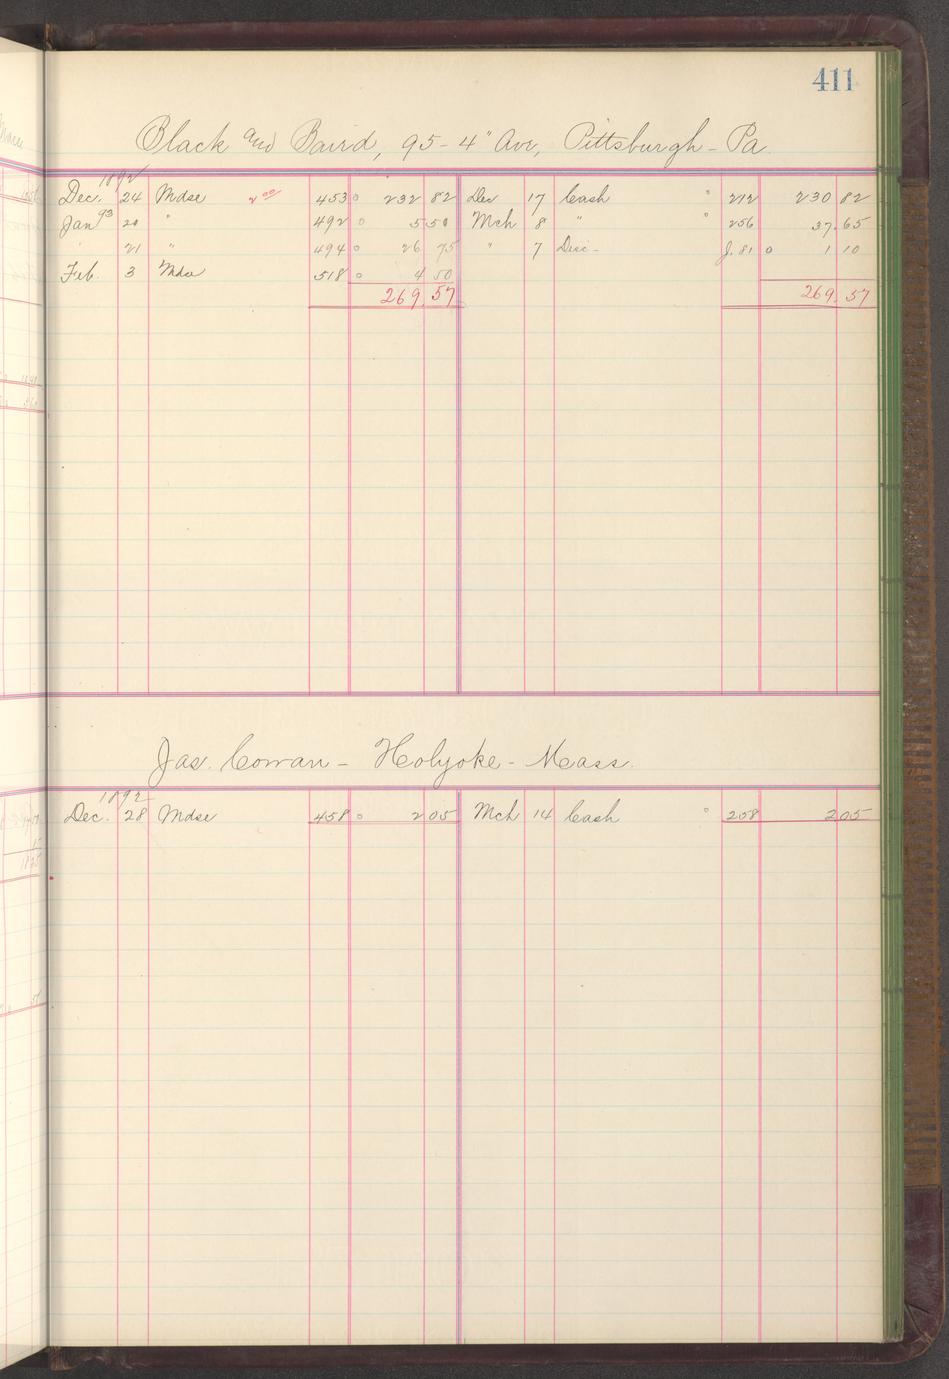 411
Black and Baird, 95 - 4" Ave, Pittsburgh - Pa
1892
Dec. 24 Mdse 2 00 453 o 232 82 Dec 17 Cash " 212 230 82
Jan 93 20 " 492 o 5 50 Mch 8 " " 256 37.65
" 21 " 494 o 26 75 " 7 Disc - J. 81 o 1 10
Feb. 3 Mdse 518 o 4 50
269.57 269.57
Jas. Cowan - Holyoke - Mass.
1892
Dec. 28 Mdse 458 o 2 05 Mch 14 Cash " 258 2 05